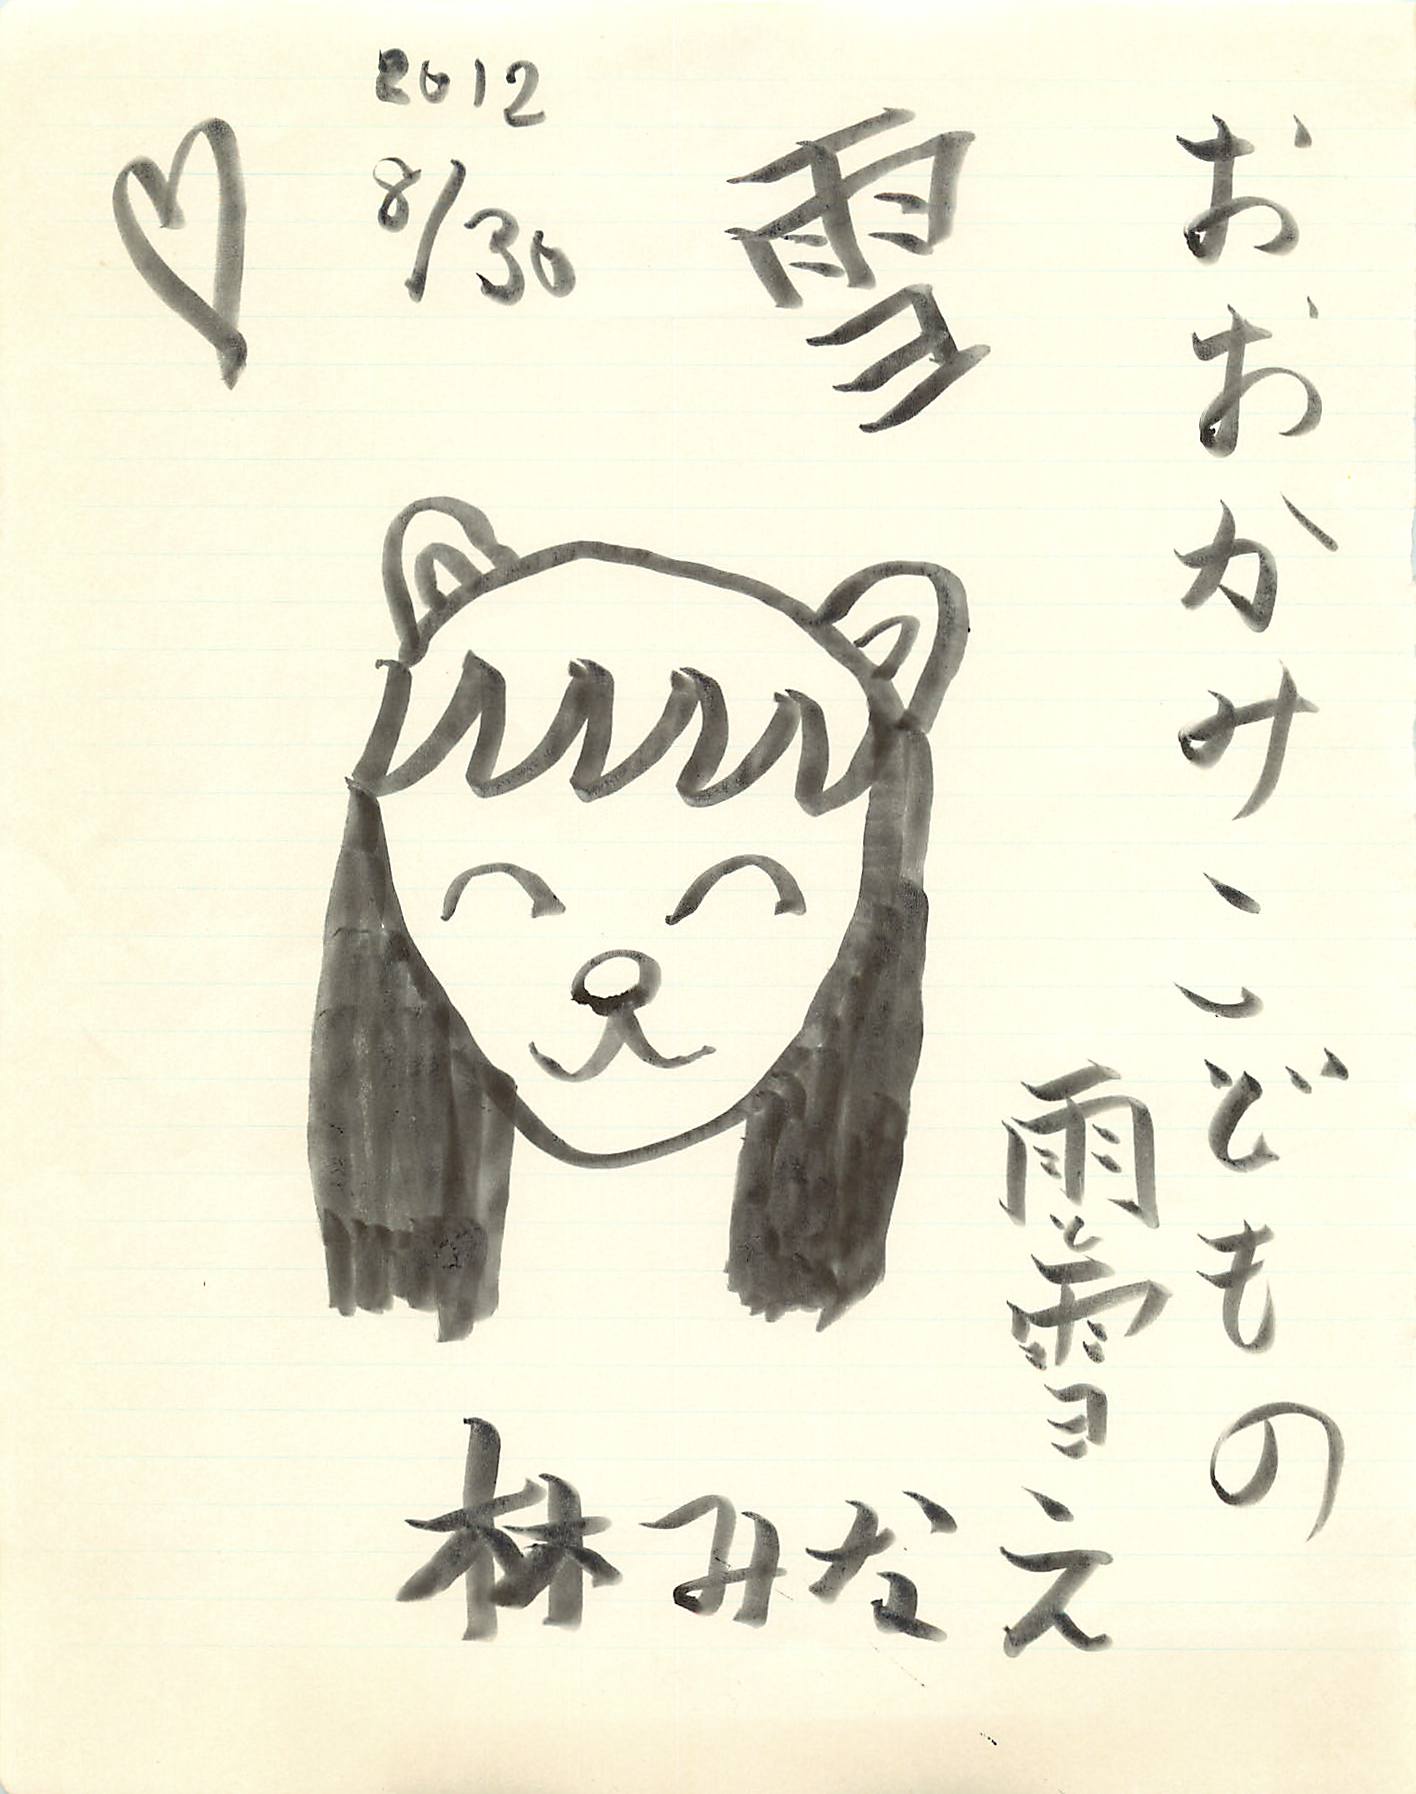 おおかみこどもの
雨と雪
雪
2012
8/30
林みなえ